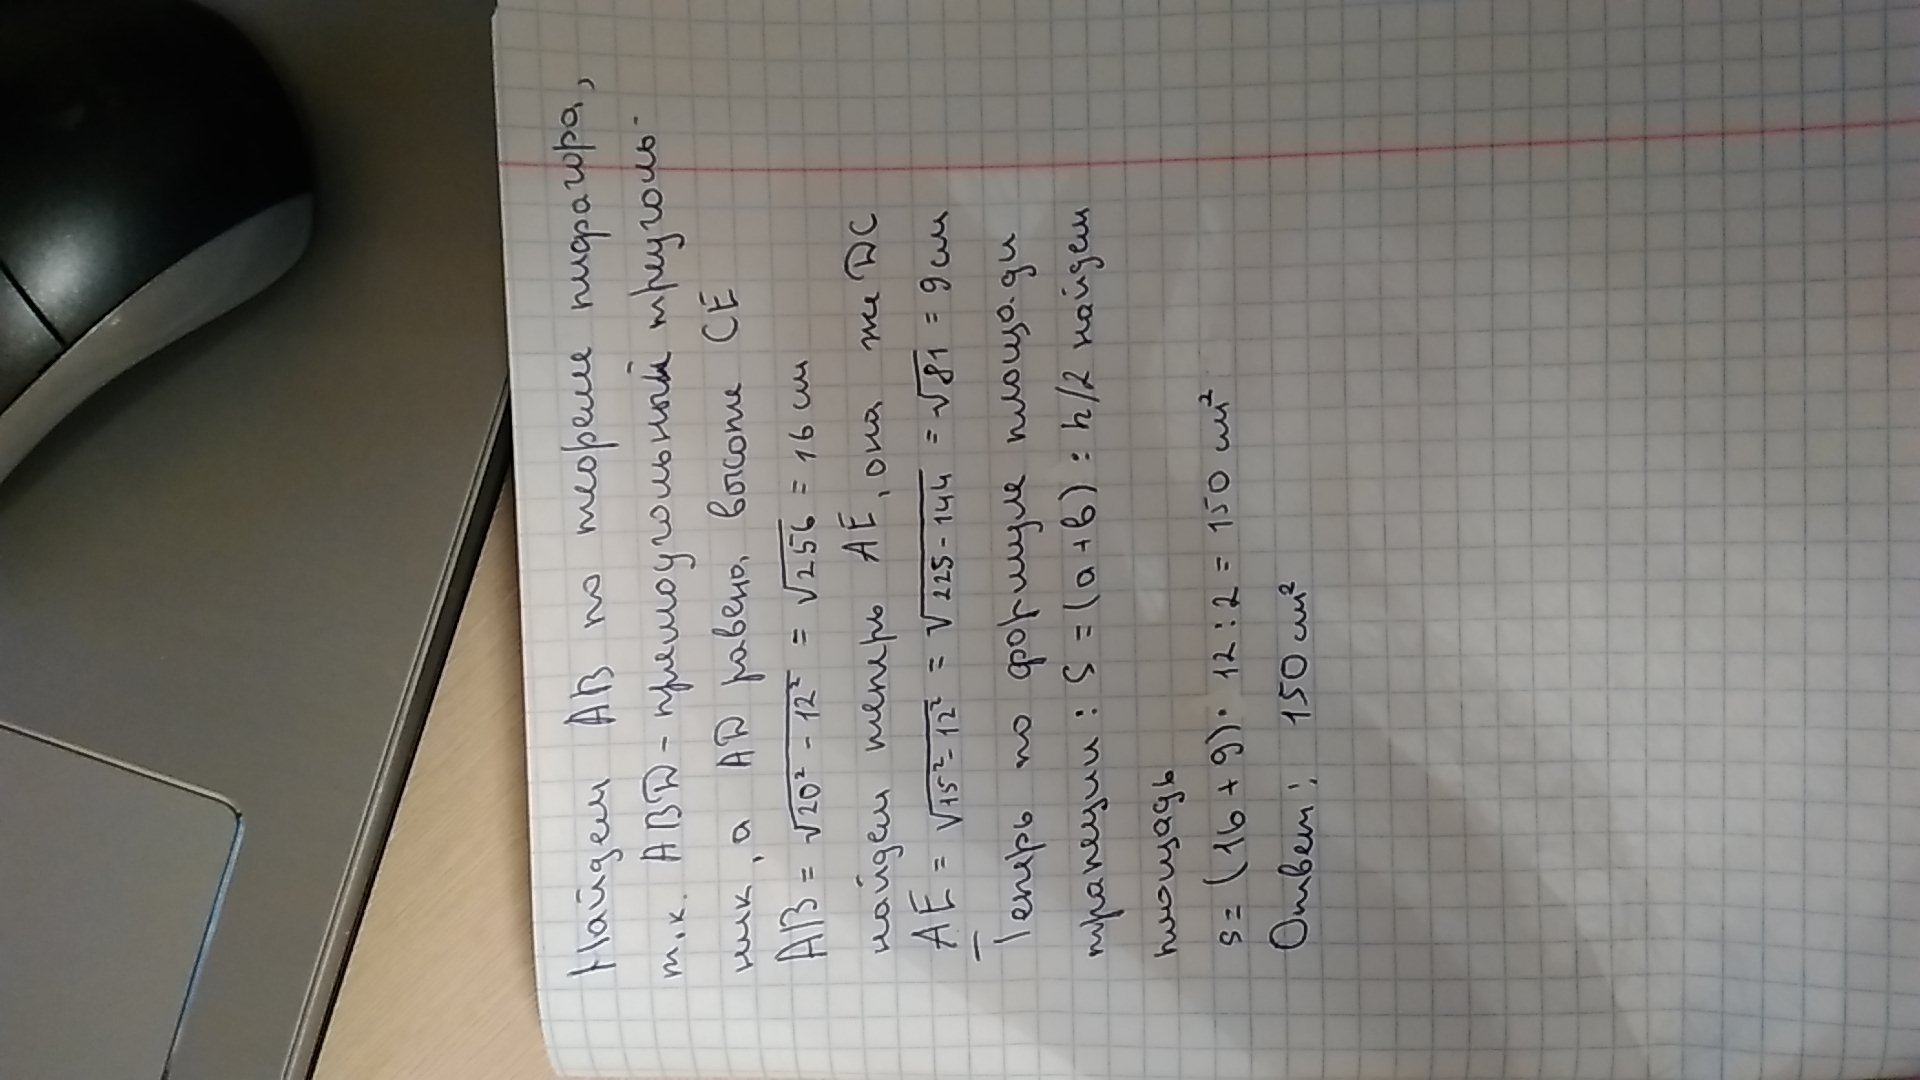 Найдем AB по теореме пифагора,
т.к. ABD - прямоугольный треуголь-
ник, а AD равена высоте CE
AB = √20² - 12² = √256 = 16 см
найдем теперь AE, она же DC
AE = √15² - 12² = √225 - 144 = √81 = 9 см
Теперь по формуле площади
трапеции: S = (a + b) : h/2 найдем
площадь
S = (16 + 9) · 12 : 2 = 150 см²
Ответ: 150 см²